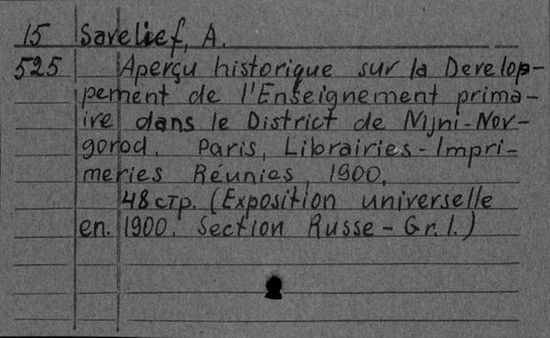 15 Savelief, A.
525 Aperçu historique sur la Develop-
pement de l'Enseignement prima-
ire dans le District de Nijni-Nov-
gorod. Paris, Librairies-Impri-
meries Réunies, 1900.
48 стр. (Exposition universelle
en. 1900. Section Russe - Gr. 1.)